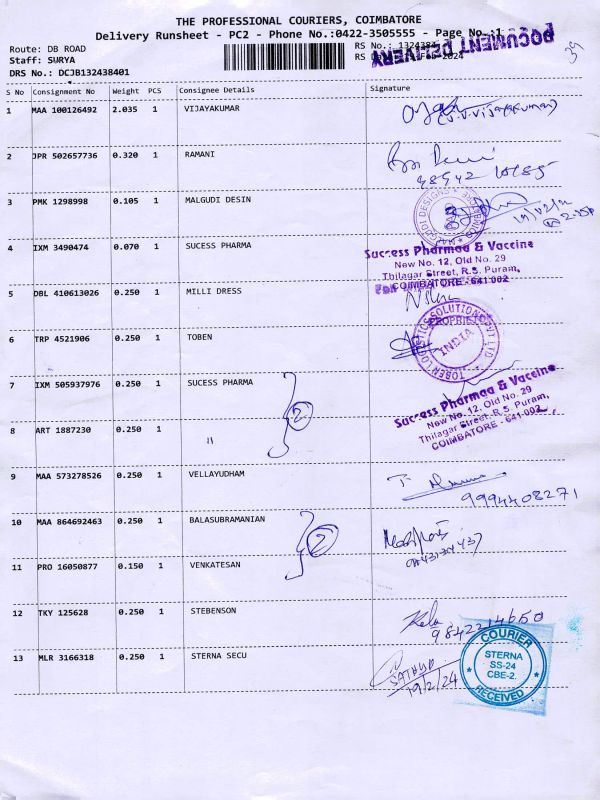 THE PROFESSIONAL COURIERS, COIMBATORE
Delivery Runsheet - PC2 - Phone No.:0422-3505555 - Page No.:1
Route: DB ROAD
Staff: SURYA
DRS No.: DCJB132438401
RS No.:
DOCUMENT DELIVERY
39
S No Consignment No Weight PCS Consignee Details Signature
1 MAA 100126492 2.035 1 VIJAYAKUMAR
2 JPR 502657736 0.320 1 RAMANI
3 PMK 1298998 0.105 1 MALGUDI DESIN
4 IXM 3490474 0.070 1 SUCESS PHARMA
Success Pharmaa & Vaccine
New No. 12, Old No. 29
Thilagar Street, R.S. Puram,
COIMBATORE - 641 002
5 DBL 410613026 0.250 1 MILLI DRESS
6 TRP 4521906 0.250 1 TOBEN
TOBEN LOGISTICS SOLUTIONS PVT LTD
INDIA
7 IXM 505937976 0.250 1 SUCESS PHARMA
2
Success Pharmaa & Vaccine
New No. 12, Old No. 29
Thilagar Street, R.S. Puram,
COIMBATORE - 641 002
8 ART 1887230 0.250 1 "
9 MAA 573278526 0.250 1 VELLAYUDHAM
9994408271
10 MAA 864692463 0.250 1 BALASUBRAMANIAN
2
11 PRO 16050877 0.150 1 VENKATESAN
12 TKY 125628 0.250 1 STEBENSON
9842214650
13 MLR 3166318 0.250 1 STERNA SECU
SATHYA
19/2/24
COURIER
STERNA
SS-24
CBE-2.
RECEIVED